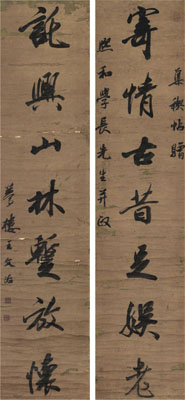 集禊帖贈
寄情古昔足娛老
熙和學長先生并政
託興山林暫放懷
夢樓王文治